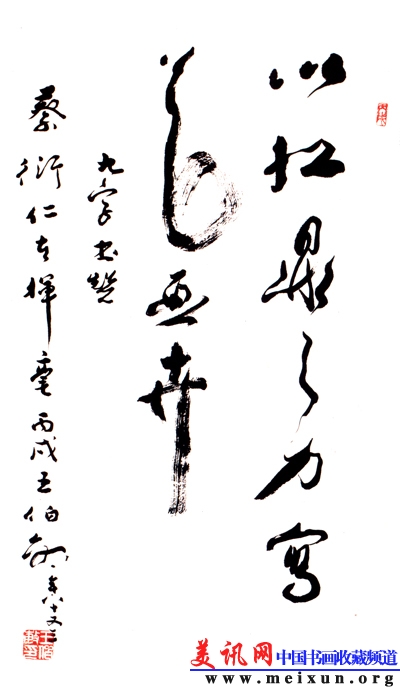 以扛鼎之力寫
花画卉
九字书
蔡衍仁揮毫丙戌王伯敏年八十又
美讯网 中国书画收藏频道
www.meixun.org